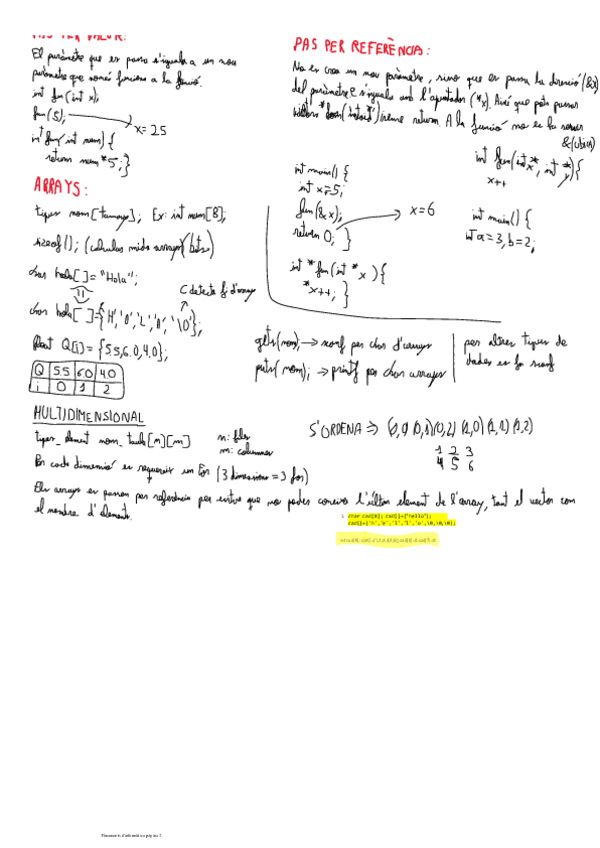 PAS PER VALOR:
El paràmetre que es passa s'iguala a un nou
paràmetre que només funciona a la funció.
int fun(int x);
fun(5);
x=25
int fun(int num){
return num*5;}
ARRAYS:
tipus nom[tamany]; Ex: int num[8];
sizeof(); (calcula mida arrays(bits)
char hola[]="Hola";
C detecta fi d'array
char hola[]={'H','O','L','A','\0'};
float Q[i]={5.5,6.0,4.0};
Q 5.5 6.0 4.0
i 0 1 2
PAS PER REFERÈNCIA:
No es crea un nou paràmetre, sino que es passa la direcció(&x)
del paràmetre i s'iguala amb l'apuntador (*x). Així que pots passar
sense return. A la funció no es fa servir
&(ubica)
int main(){
int x=5;
fun(&x);
return 0; }
x=6
int *fun(int *x){
*x++; }
int fun(int*, int*){
x++
int main(){
int a=3, b=2;
gets(nom);→scanf per char d'arrays
puts(nom);→printf per char arrays
per altres tipus de
dades es fa scanf
MULTIDIMENSIONAL
tipus_element nom_taula[n][m]
n: files
m: columnes
S'ORDENA ⇒ (0,0)(0,1)(0,2)(1,0)(1,1)(1,2)
1 2 3
4 5 6
En cada dimensió es requereix un for (3 dimensions = 3 for)
Els arrays es passen per referència per entre que no podes coneixe l'últim element de l'array, tant el vector com
el nombre d'elements.
1. char cad[8]; cad[]={"hello"};
cad[]={'h','e','l','l','o',\0,\0,\0};